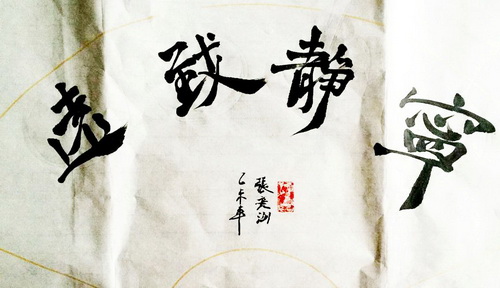 寧靜致遠
乙未年
張